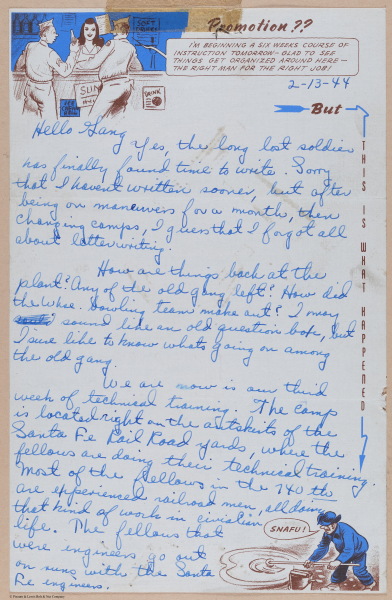 Promotion??
SOFT DRINKS
I'M BEGINNING A SIX WEEKS COURSE OF
INSTRUCTION TOMORROW - GLAD TO SEE
THINGS GET ORGANIZED AROUND HERE -
THE RIGHT MAN FOR THE RIGHT JOB!
DRINK
2-13-44
But
THIS IS WHAT HAPPENED
Hello Gang
Yes, the long lost soldier
has finally found time to write. Sorry
that I havent written sooner, but after
being on maneuvers for a month, then
changing camps, I guess that I forgot all
about letterwriting.
How are things back at the
plant? Any of the old gang left? How did
the Whse. bowling team make out? I may
sound like an old question box, but
I sure like to know whats going on among
the old gang.
We are now in our third
week of technical training. The camp
is located right on the outskirts of the
Santa Fe Rail Road yards, where the
fellows are doing their technical training.
Most of the fellows in the 740 th
are experienced railroad men, all doing
that kind of work in civialian
life. The fellows that
were engineers go out
on runs with the Santa
Fe engineers.
SNAFU!